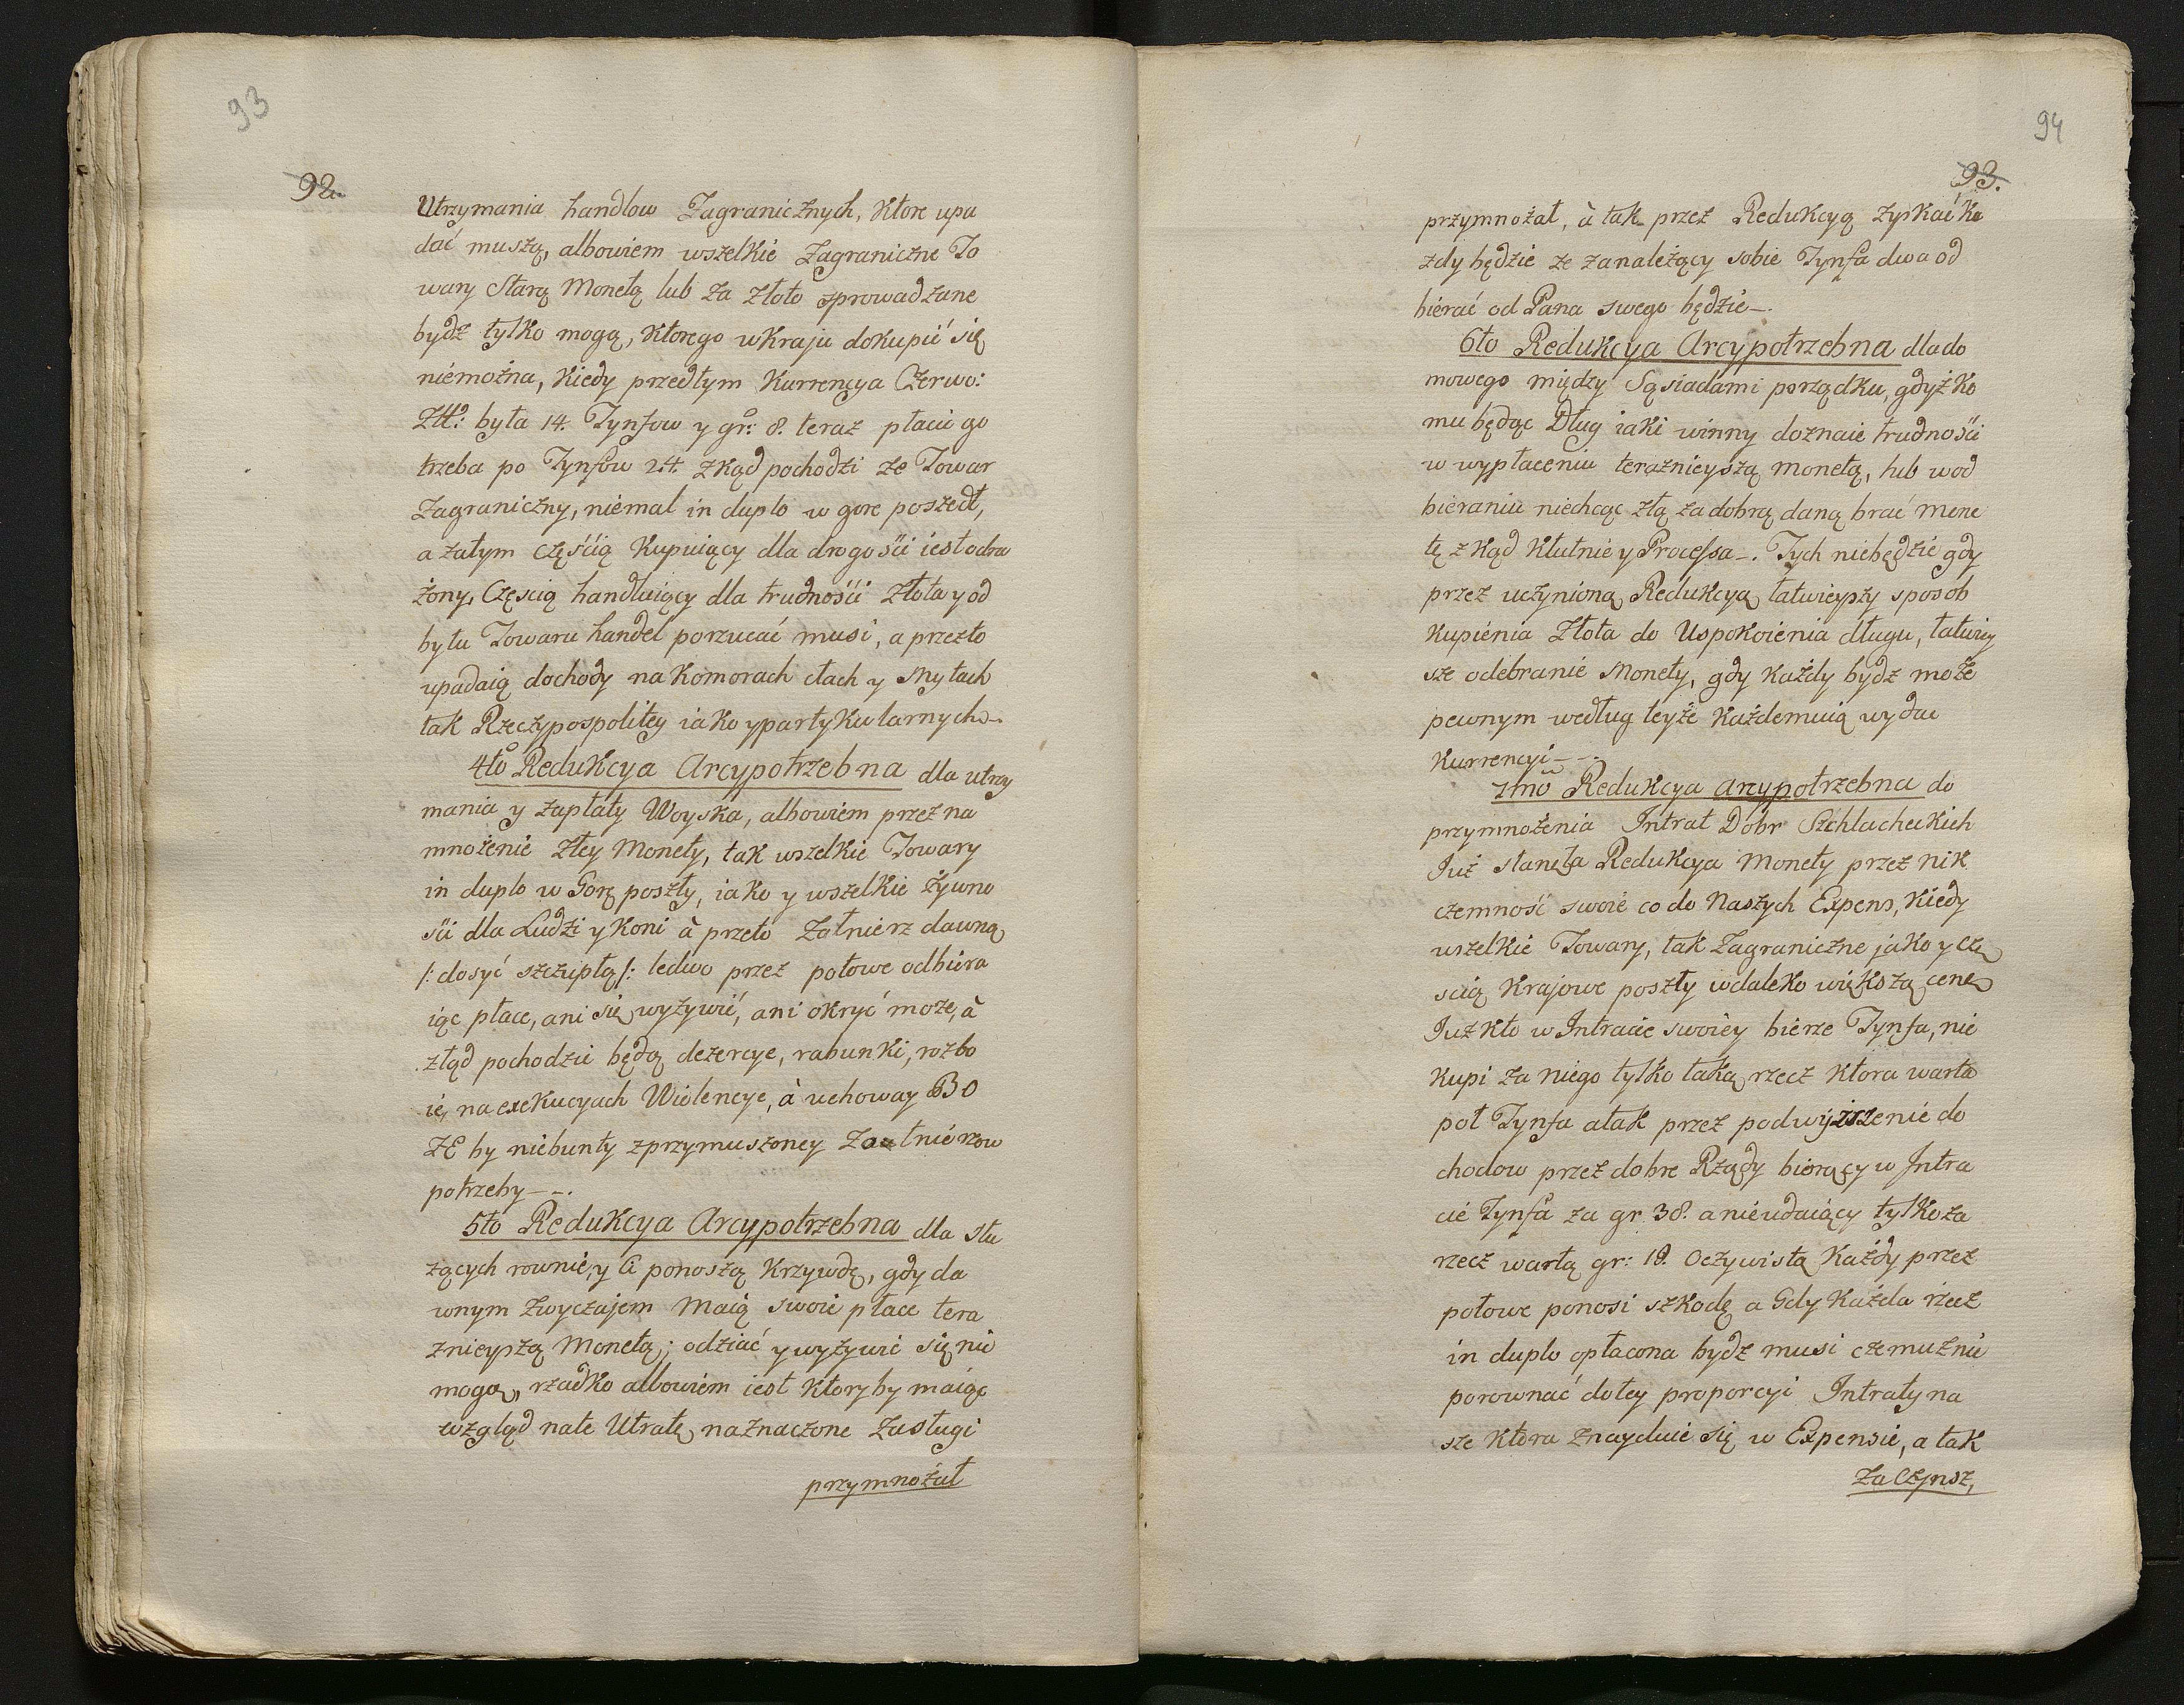 93
92.
Utrzymania handlow Zagranicznych, Ktore upa
dać muszą, albowiem wszelkie Zagraniczne To
wary Starą Monetą lub za Złoto sprowadzane
bydz tylko mogą, Ktorego w Kraju dokupić się
niemożna, Kiedy przedtym Kurrencya Czerwo:
Złł: była 14. Tynfow y gr: 8. teraz płacić go
trzeba po Tynfow 24. zkąd pochodzi że Towar
Zagraniczny, niemal in duplo w gore poszedł,
a zatym częścią Kupuiący dla drogości iest odra
żony, Częscią handluiący dla trudności Złota y od
bytu Towaru handel porzucać musi, a przezto
upadaią dochody na Komorach cłach y Mytach
tak Rzeczypospolitey iako y partykularnych-.
4to Redukcya Arcypotrzebna dla utrzy
mania y zapłaty Woyska, albowiem przez na
mnożenie Złey Monety, tak wszelkie Towary
in duplo w Gorę poszły, iako y wszelkie żywno
ści dla Ludzi y Koni à przeto Zołnierz dawną
/: dosyć szczupłą /: ledwo przez połowe odbiera
iąc płace, ani się wyżywić, ani okryć może, à
ztąd pochodzić będą dezercye, rabunki, rozbo
ie, na exekucyach Wiolencye, à uchoway BO
ZE by niebunty z przymuszoney Zołnierzow
potrzeby--.
5to Redukcya Arcypotrzebna dla słu
żących rownie, y Ci ponoszą Krzywdę, gdy da
wnym Zwyczajem Maią swoie płace tera
znieyszą Monetą; odziać y wyżywić się nie
mogą, rzadko albowiem iest Ktoryby maiąc
wzgląd na te Utratę naznaczone Zasługi
przymnożał
94
93.
przymnożał, à tak przez Redukcyą zyskać Ka
żdy będzie ze zanależący sobie Tynfa dwa od
bierać od Pana swego będzie-.
6to Redukcya Arcypotrzebna dla do
mowego między Sąsiadami porządku, gdyż Ko
mu będąc Dług iaki winny doznaie trudności
w wypłaceniu teraznieyszą monetą, lub w od
bieraniu niechcąc złą za dobrą daną brać mone
tę z Kąd Kłutnie y Processa-. Tych niebędzie gdy
przez uczynioną Redukcyą łatwieyszy sposob
Kupienia Złota do Uspokoienia długu, łatwiey
sze odebranie Monety, gdy Każdy bydz może
pewnym według teyże Każdemu ią wydać
Kurrencyi--.
7mo Redukcya arcypotrzebna do
przymnożenia Intrat Dobr Szchlacheckich
Już stanęła Redukcya Monety przez nik
czemność swoie co do Naszych Expens, Kiedy
wszelkie Towary, tak Zagraniczne jako y czę
scią Krajowe poszły w daleko większą cenę
Juz Kto w Intracie swoiey bierze Tynfa, nie
Kupi za niego tylko taką rzecz Ktora warta
poł Tynfa a tak przez podwyższenie do
chodow przez dobre Rządy biorący w Intra
cie Tynfa za gr 38. a nieudaiący tylko za
rzecz wartą gr: 19. Oczywistą Każdy przez
połowe ponosi szkodę a Gdy Każda rzecz
in duplo opłacona bydz musi czemuż nie
porownać do tey proporcyi Intraty na
sze Ktora znayduie się w Expensie, a tak
za Czynsz,